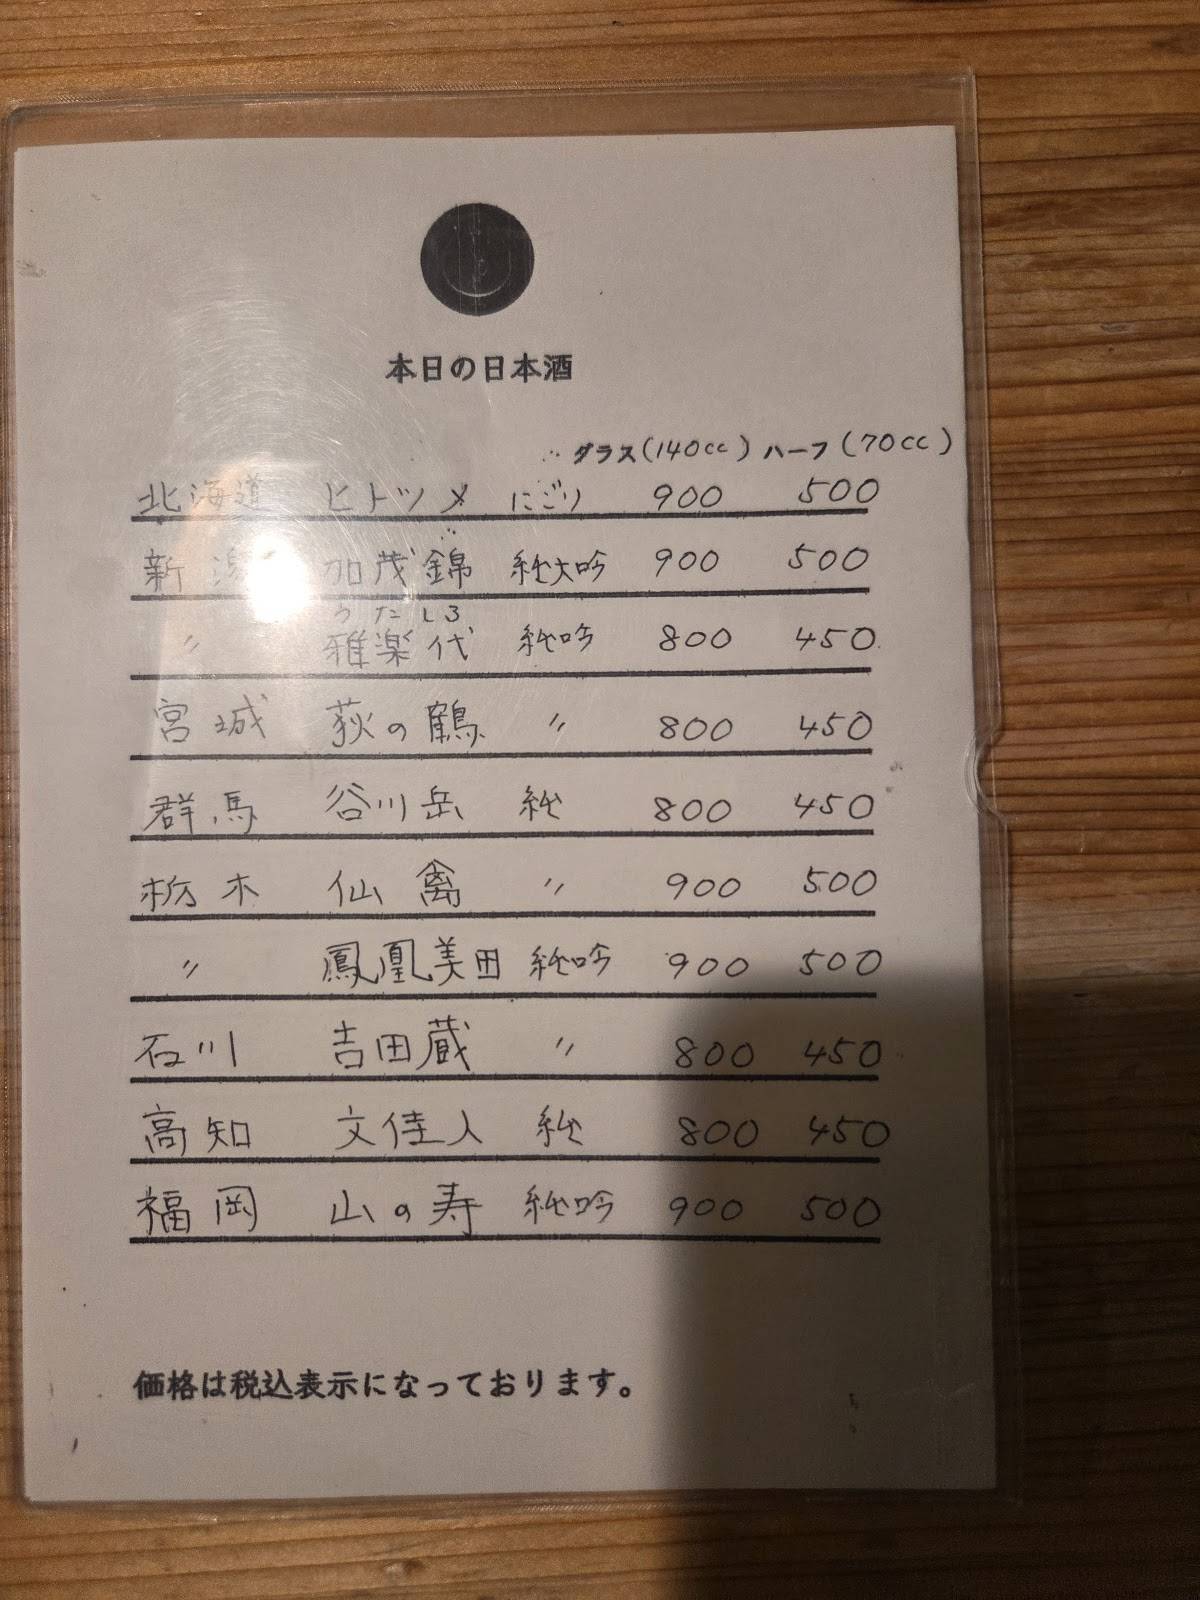 本日の日本酒
グラス(140cc) ハーフ(70cc)
北海道 ヒトツメ にごり 900 500
新潟 加茂錦 純大吟 900 500
うたしろ
〃 雅楽代 純吟 800 450
宮城 萩の鶴 〃 800 450
群馬 谷川岳 純 800 450
栃木 仙禽 〃 900 500
〃 鳳凰美田 純吟 900 500
石川 吉田蔵 〃 800 450
高知 文佳人 純 800 450
福岡 山の寿 純吟 900 500
価格は税込表示になっております。